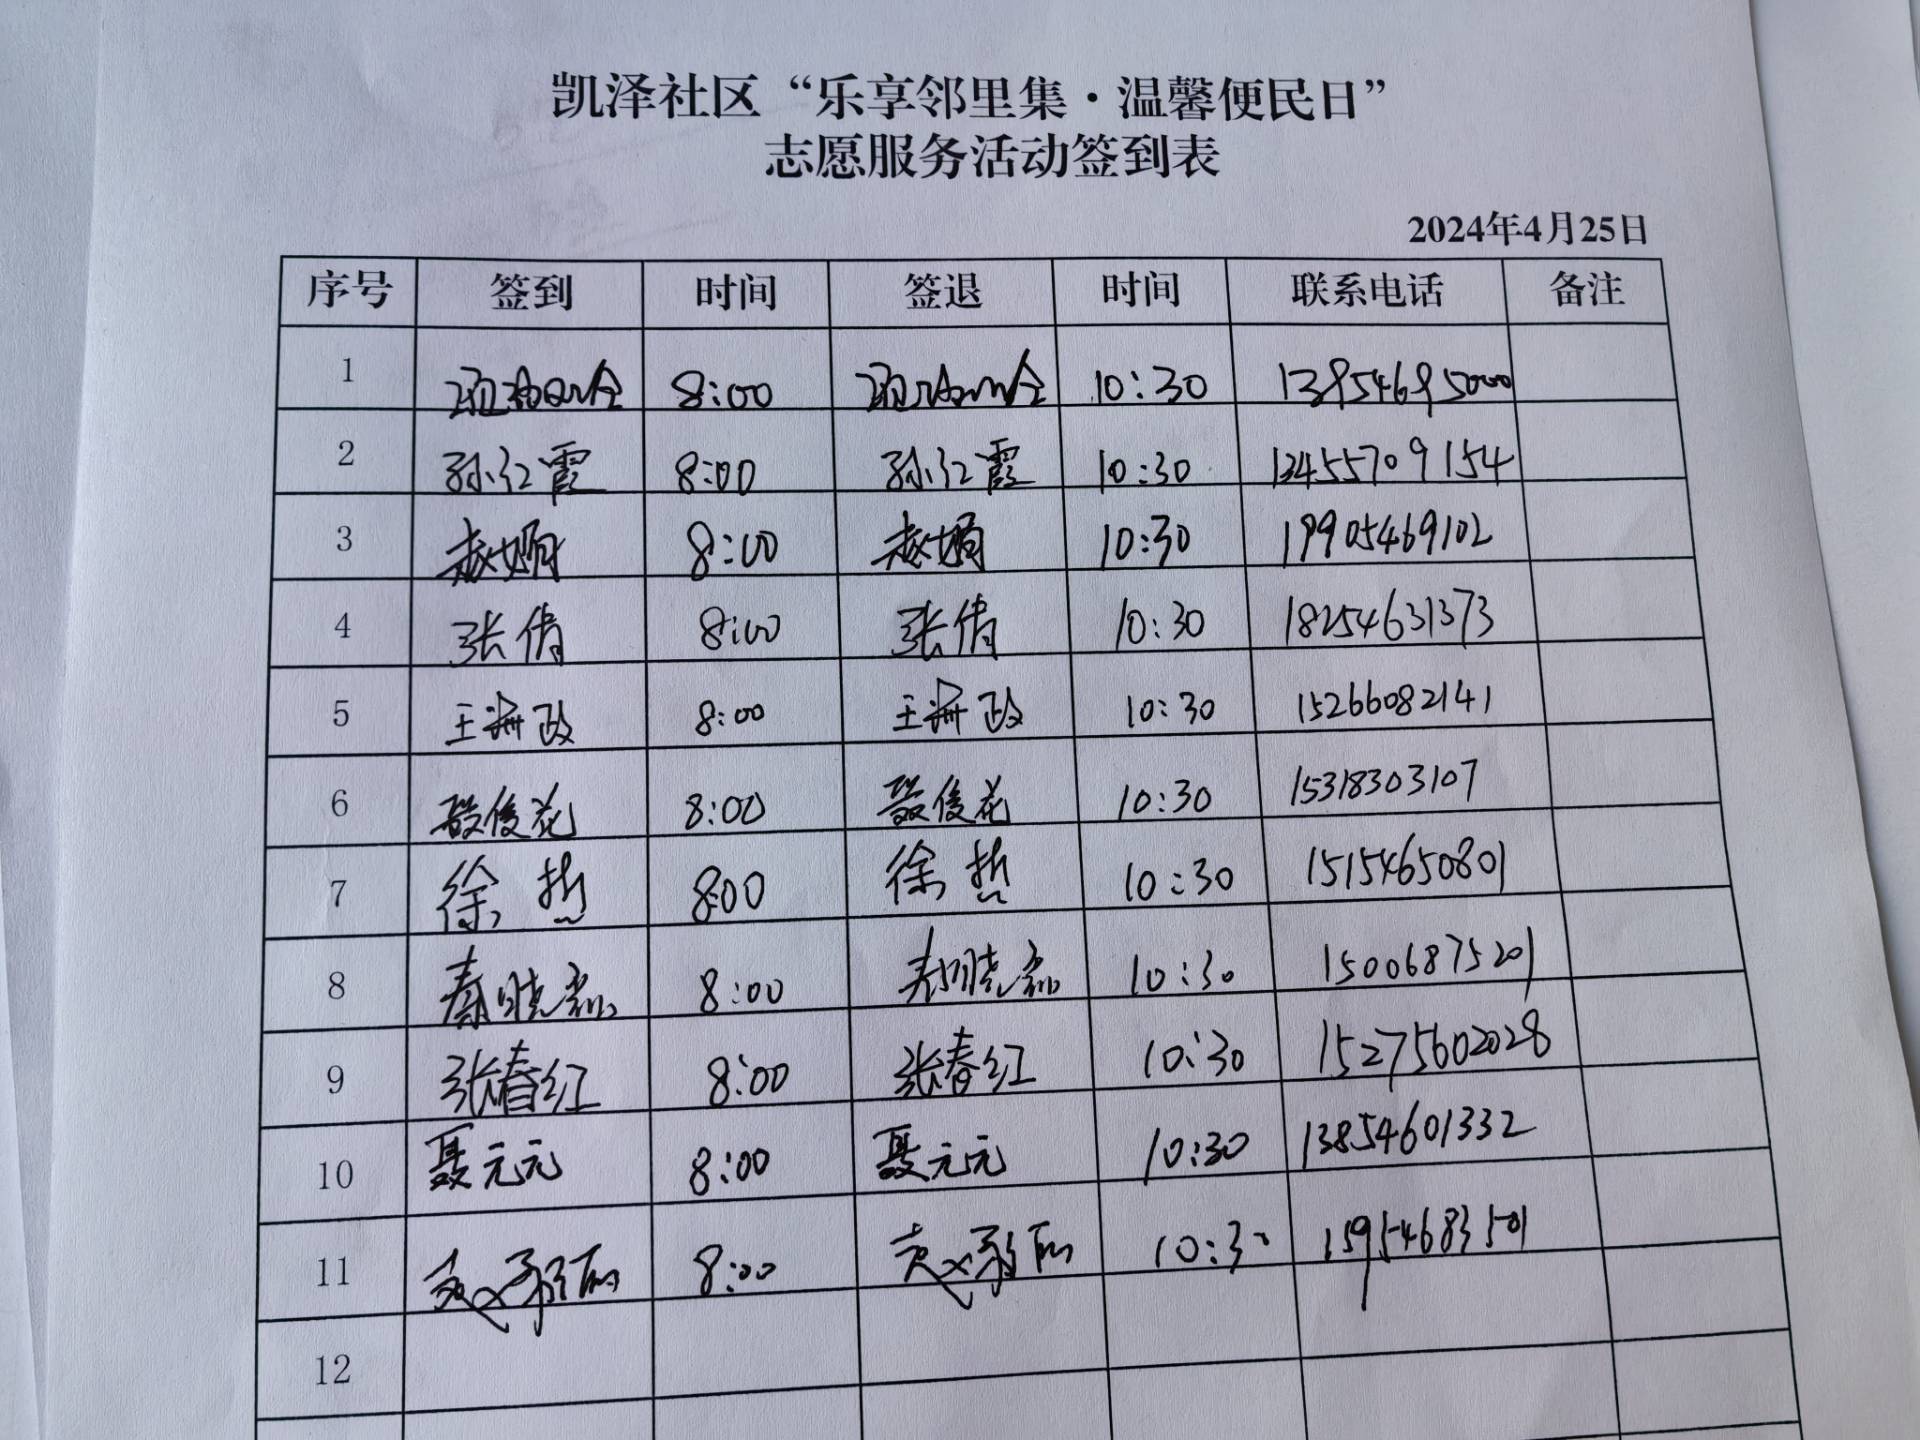 凯泽社区“乐享邻里集·温馨便民日”
志愿服务活动签到表
2024年4月25日
序号 签到 时间 签退 时间 联系电话 备注
1 8:00 10:30 13954695000
2 孙红霞 8:00 孙红霞 10:30 13455709154
3 赵娟 8:00 赵娟 10:30 19905469102
4 张倩 8:00 张倩 10:30 18254631373
5 王海政 8:00 王海政 10:30 15266082141
6 殷俊花 8:00 殷俊花 10:30 15318303107
7 徐哲 8:00 徐哲 10:30 15154650801
8 8:00 10:30 15006875201
9 张春红 8:00 张春红 10:30 15275602028
10 聂元元 8:00 聂元元 10:30 13854601332
11 8:00 10:30 15954683501
12